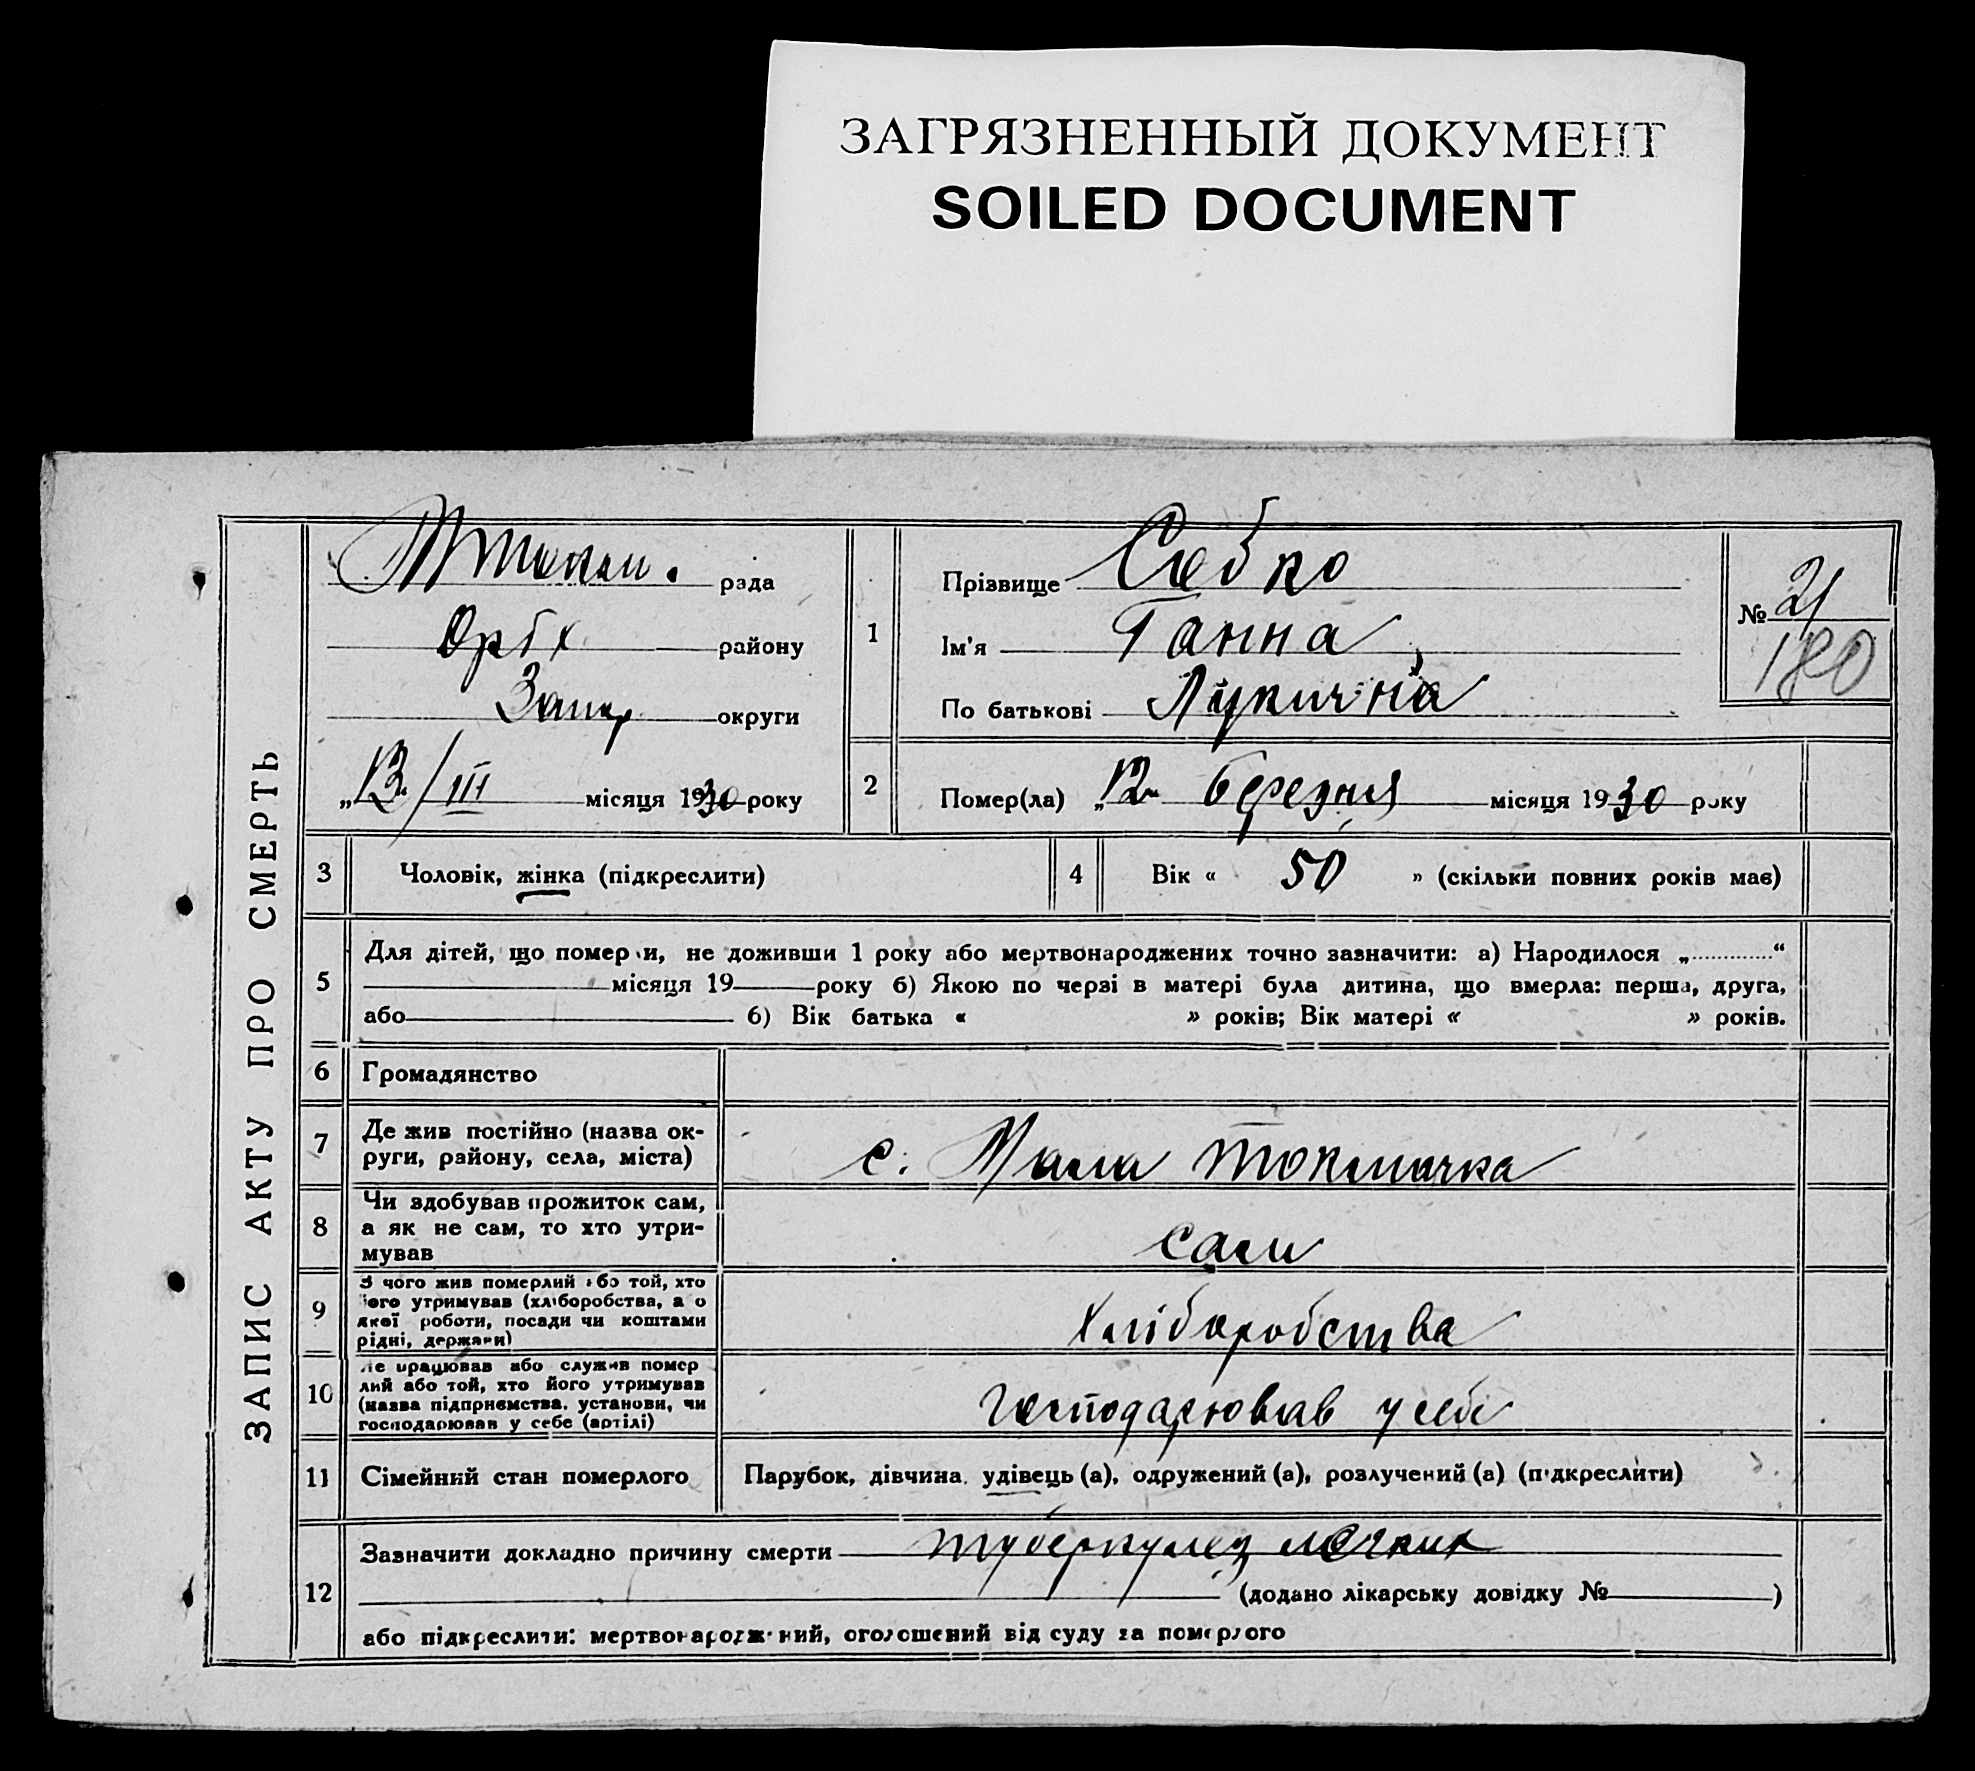 ЗАГРЯЗНЕННЫЙ ДОКУМЕНТ
SOILED DOCUMENT
ЗАПИС АКТУ ПРО СМЕРТЬ
рада
Оріх району
Запор округи
„13/III місяця 1930 року
1
Прізвище
Ім'я Ганна
По батькові Лукична
№ 21
180
2
Помер(ла) „12 березня місяця 1930 року
3 Чоловік, жінка (підкреслити)
4 Вік « 50 » (скільки повних років має)
5
Для дітей, що померли, не доживши 1 року або мертвонароджених точно зазначити: а) Народилося „ “
місяця 19 року б) Якою по черзі в матері була дитина, що вмерла: перша, друга,
або 6) Вік батька « » років; Вік матері « » років.
6 Громадянство
7
Де жив постійно (назва ок-
руги, району, села, міста)
с. Мала Токмачка
8
Чи здобував прожиток сам,
а як не сам, то хто утри-
мував
сам
9
З чого жив померлий або той, хто
його утримував (хліборобства, а о
якої роботи, посади чи коштами
рідні, держави)
Хліборобства
10
Де працював або служив помер
лий або той, хто його утримував
(назва підприємства, установи, чи
господарював у себе (артілі)
господарював у себе
11 Сімейний стан померлого
Парубок, дівчина, удівець (а), одружений (а), розлучений (а) (підкреслити)
12
Зазначити докладно причину смерти туберкулез легких
(додано лікарську довідку № )
або підкреслити: мертвонароджений, оголошений від суду за померлого